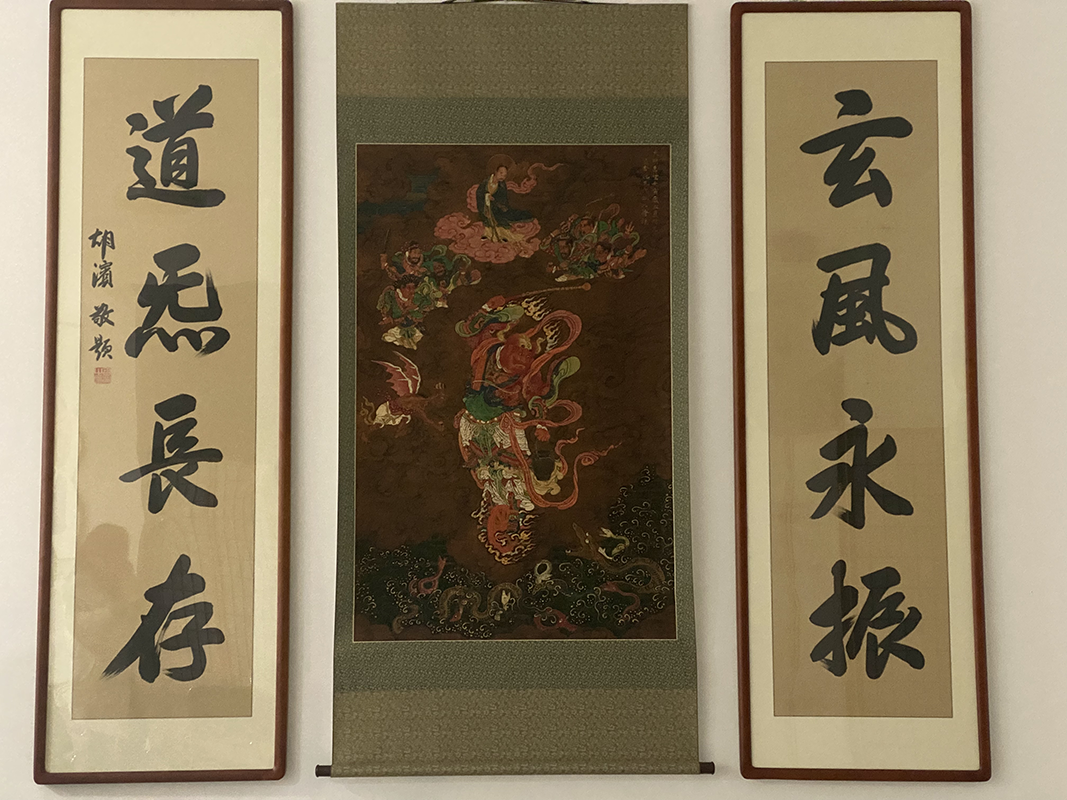 玄風永振
道炁長存
胡濱敬題